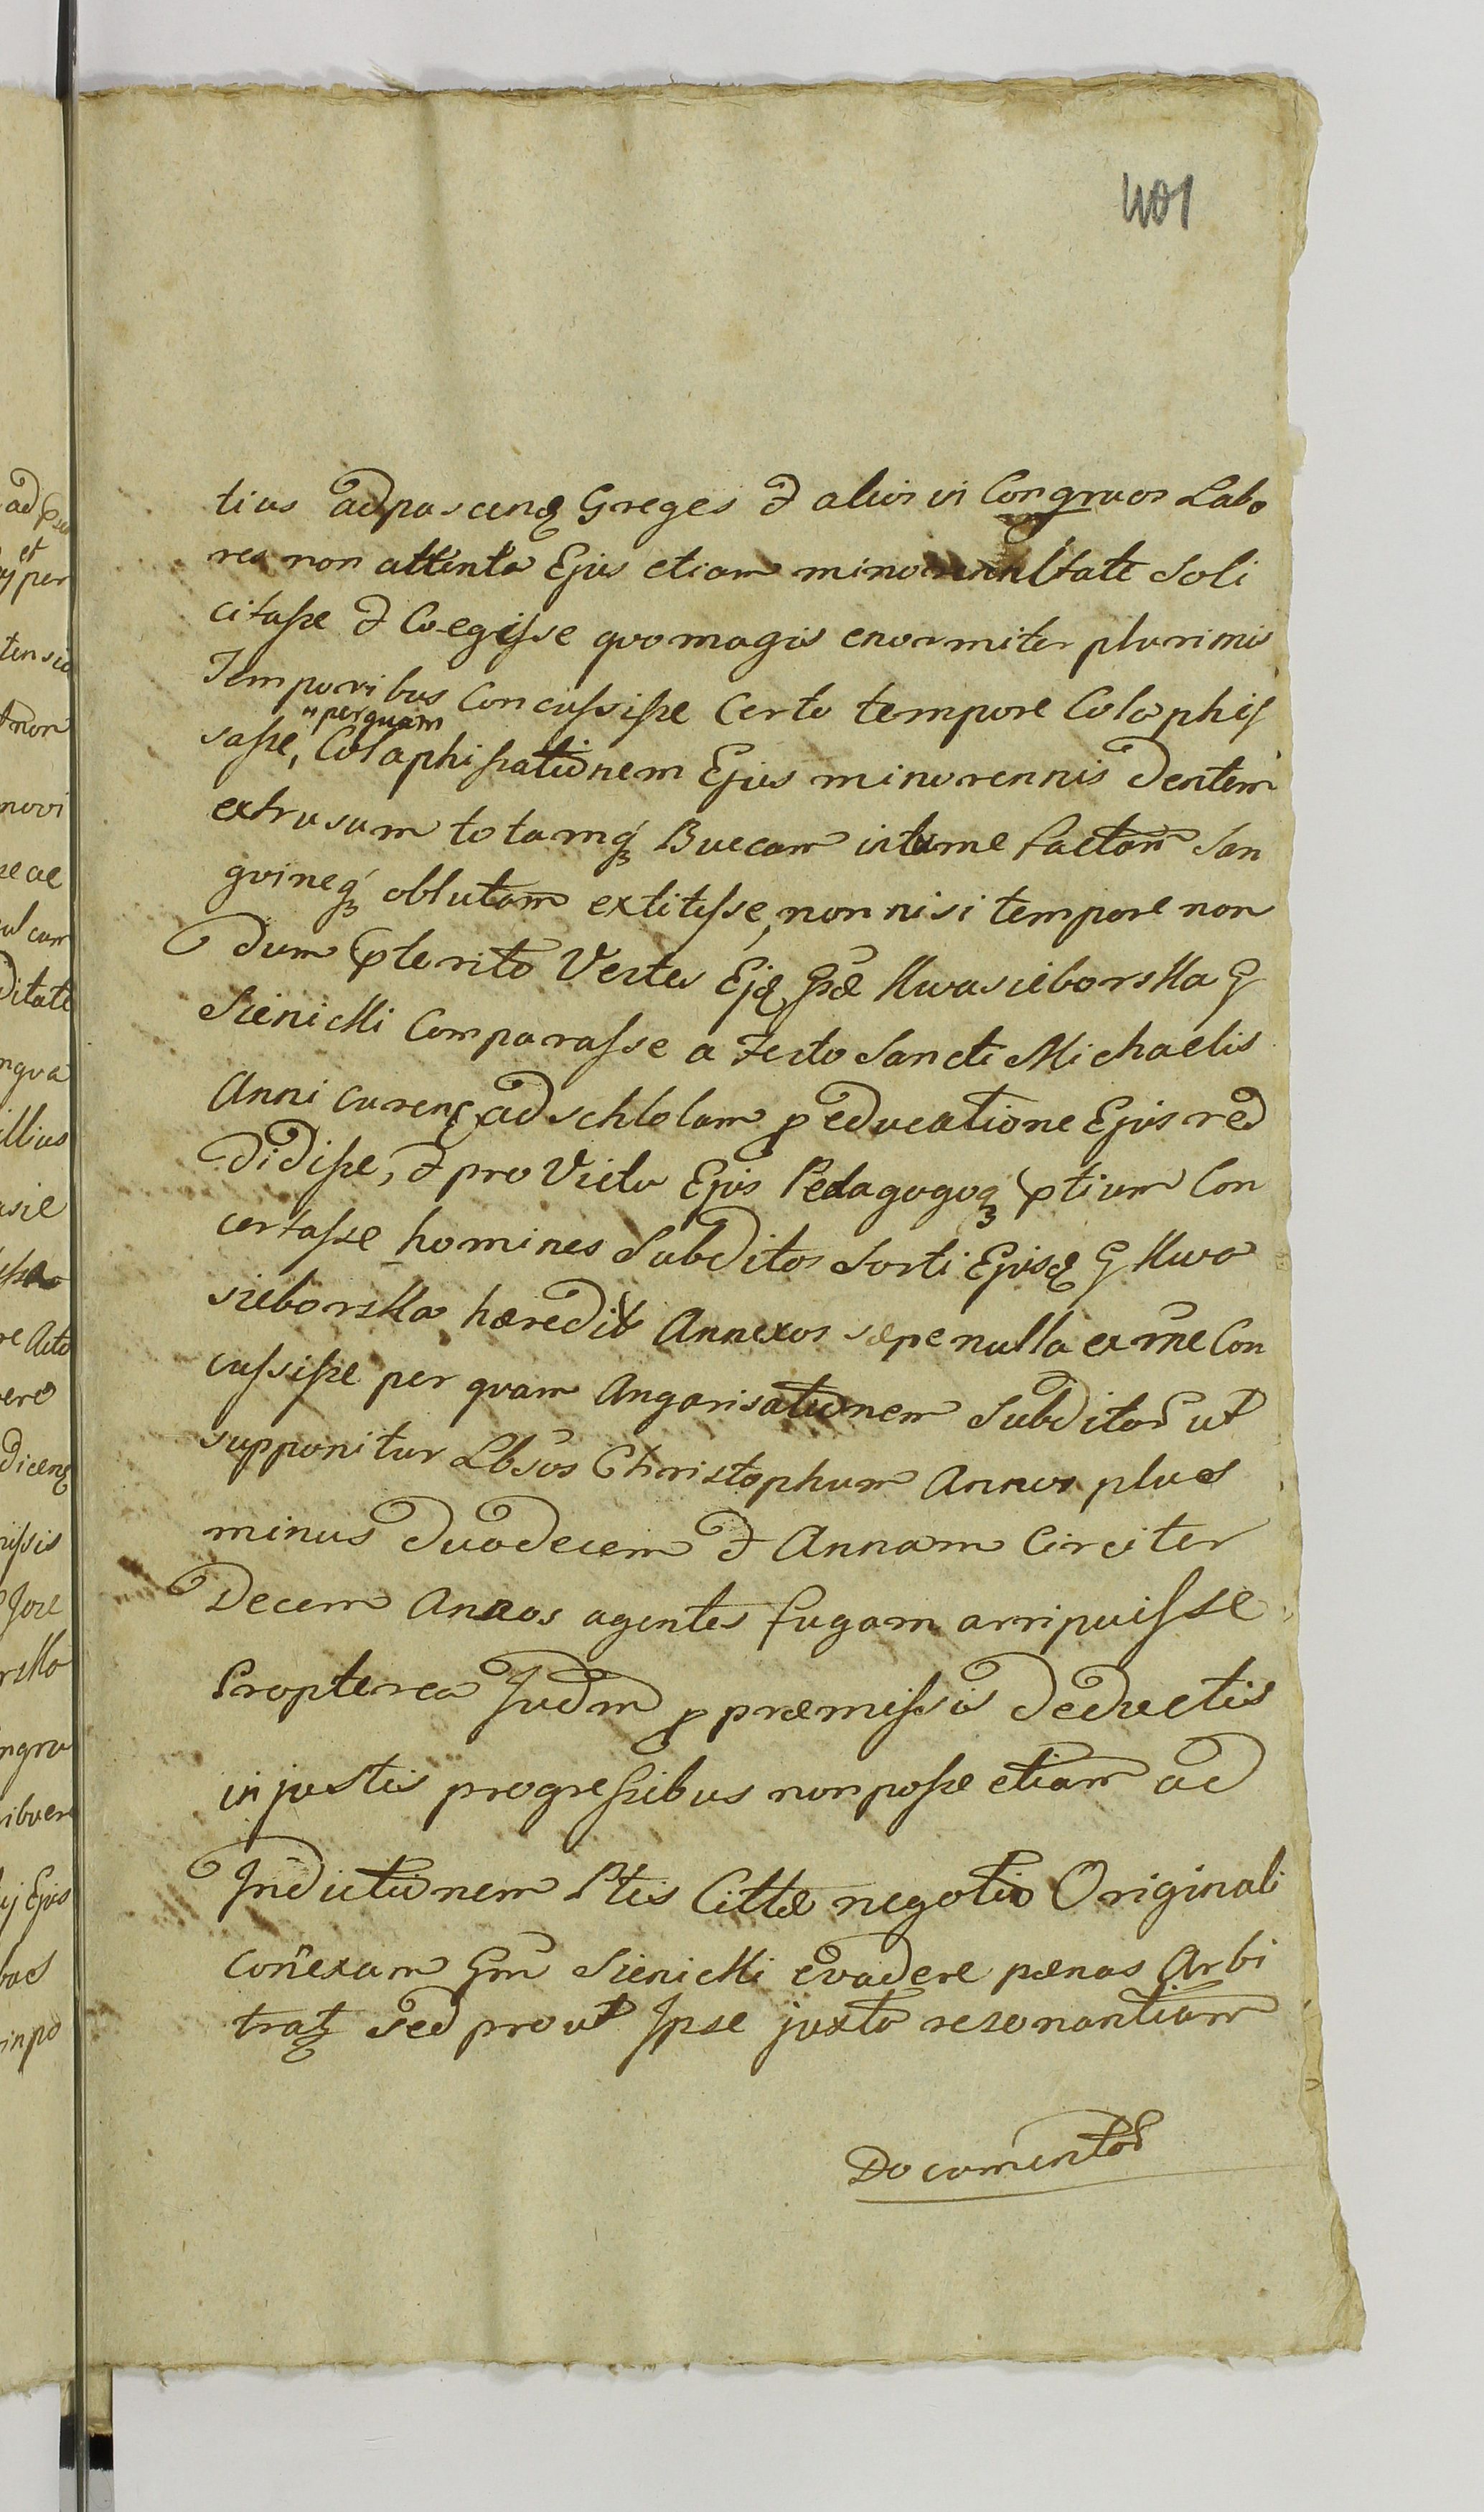 401
tius ad pascend Greges & alios in Congruos Labo
res non attenta Ejus etiam minorennitate Soli
citasse & Coegisse quo magis enormiter plurimis
Temporibus Concussisse Certo tempore Colaphis
sasse, "perquam Colaphisationem Ejus minorennis dentem
extrusum totamq3 Buccam intume factam San
guineq3 oblutam extitisse, non nisi tempore non
dum pterito Vestes Ejq Gsæ Kwasieborska G
Sienicki Comparasse a Festo Sancti Michaelis
Anni curens ad schlolam p educatione Ejus red
didisse, & pro Victu Ejus Pedagogoq3 ptium Con
certasse homines Subditos Sorti Ejusd G Kwa
sieborska hæredit Annexos sæpe nulla ex rne Con
cussisse per quam Angarisationem Subditor ut
supponitur Lbsos Christophum Annos plus
minus duodecem & Annam Circiter
Decem Annos agentes fugam arripuisse
Propterea Judm p præmissis deductis
injustis progressibus non posse etiam ad
Indictionem Ptis Cittæ negotio Originali
coñexam Gm Sienicki evadere pænas Arbi
trat Sed prout Ipse juxta resonantiam
Documentor
ad
et
per
tensio
non
novi
cum
ditate
ngva
illius
asie
re Acto
vere
dicens
missis
rska
ngru
ibuere
ij Ejus